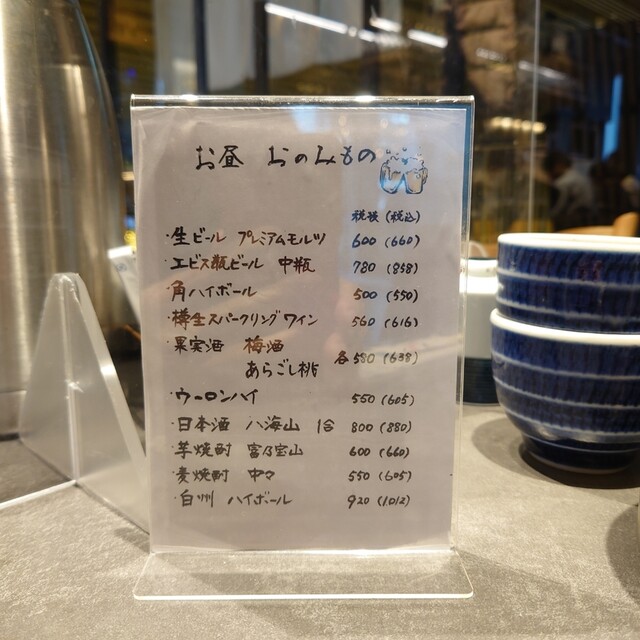 お昼 おのみもの
税抜(税込)
・生ビール プレミアムモルツ 600(660)
・エビス瓶ビール 中瓶 780(858)
・角ハイボール 500(550)
・樽生スパークリングワイン 560(616)
・果実酒 梅酒
あらごし桃 各580(638)
・ウーロンハイ 550(605)
・日本酒 八海山 1合 800(880)
・芋焼酎 富乃宝山 600(660)
・麦焼酎 中々 550(605)
・白州 ハイボール 920(1012)